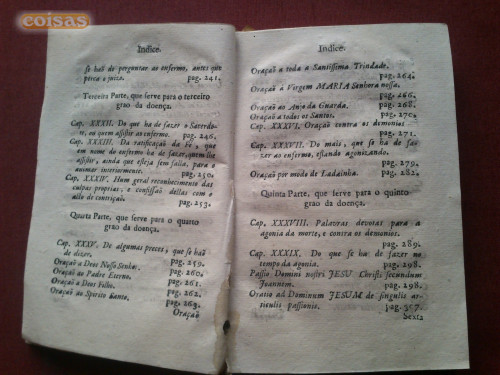 coisas
Indice.
se haõ de perguntar ao enfermo, antes que
perca o juizo. pag. 241.
Terceira Parte, que serve para o terceiro
grao da doença.
Cap. XXXII. Do que ha de fazer o Sacerdo-
te, ou quem assistir ao enfermo. pag. 246.
Cap. XXXIII. Da ratificaçaõ da Fé, que
em nome do enfermo ha de fazer, quem lhe
assistir, ainda que esteja sem falla, para o
animar interiormente. pag. 250.
Cap. XXXIV. Hum geral reconhecimento das
culpas proprias; e confissaõ dellas com o
acto de contriçaõ. pag. 253.
Quarta Parte, que serve para o quarto
grao da doença.
Cap. XXXV. De algumas preces, que se haõ
de dizer. pag. 259.
Oraçaõ a Deos Nosso Senhor.
Oraçaõ ao Padre Eterno. pag. 260.
Oraçaõ a Deos Filho. pag. 261.
Oraçaõ ao Spirito Santo. pag. 262.
pag. 263.
Oraçaõ
Indice.
Oraçaõ a toda a Santissima Trindade.
pag. 264.
Oraçaõ à Virgem MARIA Senhora nossa.
pag. 266.
Oraçaõ ao Anjo da Guarda. pag. 268.
Oraçaõ a todos os Santos. pag. 270.
Cap. XXXVI. Oraçaõ contra os demonios
pag. 271.
Cap. XXXVII. Do mais, que se ha de fazer
ao enfermo, estando agonizando.
pag. 279.
Oraçaõ por modo de Ladainha. pag. 282.
Quinta Parte, que serve para o quinto
grao da doença.
Cap. XXXVIII. Palavras devotas para a
agonia da morte, e contra os demonios.
pag. 289.
Cap. XXXIX. Do que se ha de fazer no
tempo da agonia. pag. 298.
Passio Domini nostri JESU Christi secundum
Joannem. pag. 298.
Oratio ad Dominum JESUM de singulis ar-
ticulis passionis. pag. 307.
Sexta